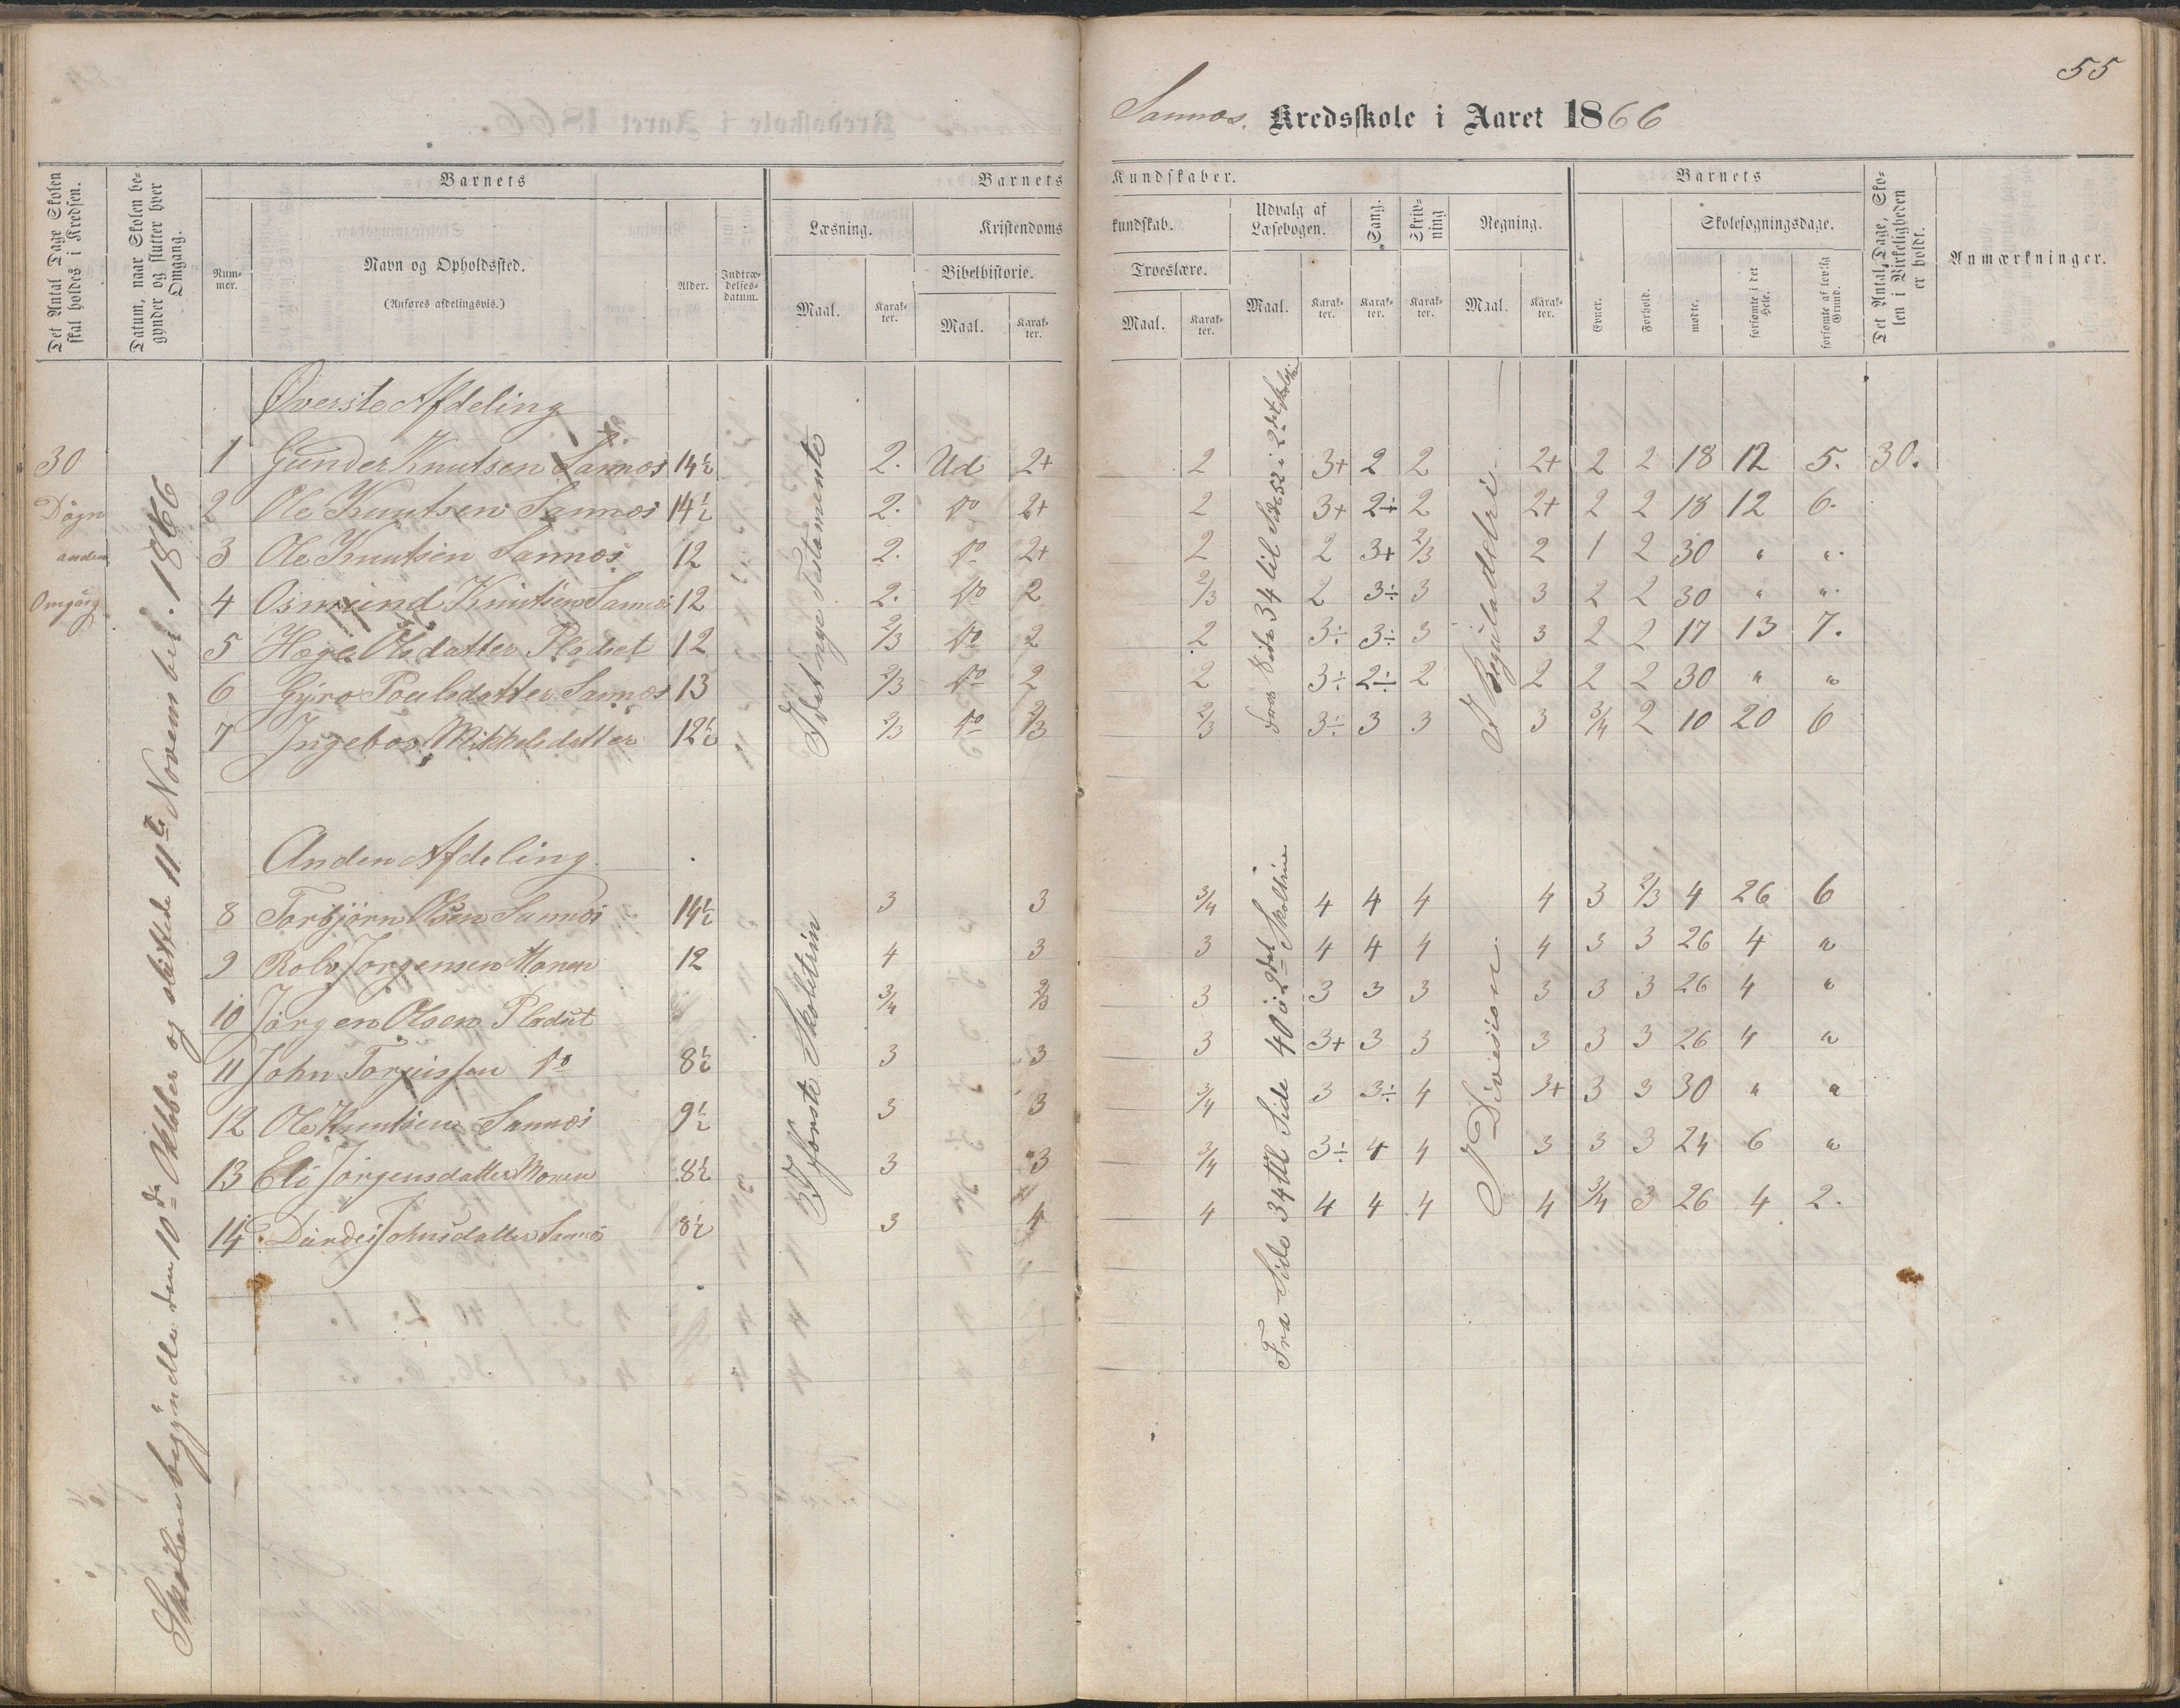 55
Sannæs. Kredsskole i Aaret 1866
Det Antal Dage Skolen skal holdes i Kredsen.
Datum, naar Skolen begynder og slutter hver Omgang.
Barnets
Nummer.
Navn og Opholdssted.
(Anføres afdelingsvis.)
Alder.
Indtrædelsesdatum.
Barnets Kundskaber.
Læsning.
Maal.
Karakter.
Kristendomskundskab.
Bibelhistorie.
Maal.
Karakter.
Troeslære.
Maal.
Karakter.
Udvalg af Læsebogen.
Maal.
Karakter.
Sang.
Karakter.
Skrivning
Karakter.
Regning.
Maal.
Karakter.
Barnets
Evner.
Forhold.
Skolesøgningsdage.
mødte.
forsømte i det Hele.
forsømte af lovlig Grund.
Det Antal Dage, Skolen i Virkeligheden er holdt.
Anmærkninger.
30 Døgn anden Omgang
Skolen begyndte den 10de Oktober og sluttede 11te November 1866
Øverste Afdeling
I det nye Testamente
Fra Side 34 til Side 52 i 2det Skoletrin
I Reguladetri
1 Gunder Knutsen Sannæs 14½ 2. Ud 2+ 2 3+ 2 2 2+ 2 2 18 12 5. 30.
2 Ole Knutsen Sannæs 14½ 2. do 2+ 2 3+ 2÷ 2 2+ 2 2 18 12 6.
3 Ole Knutsen Sannæs 12 2. do 2+ 2 2 3+ 2/3 2 1 2 30 " "
4 Osmund Knutsen Sannæs 12 2. do 2 2/3 2 3÷ 3 3 2 2 30 " "
5 Hæge Olsdatter Pladset 12 2/3 do 2 2 3÷ 3÷ 3 3 2 2 17 13 7.
6 Gyro Poulsdatter Sannæs 13 2/3 do 2 2 3÷ 2÷ 2 2 2 2 30 " "
7 Ingebor Mikkelsdatter 12½ 2/3 do 2/3 2/3 3÷ 3 3 3 3/4 2 10 20 6
Anden Afdeling
I første Skoletrin
Fra Side 34 til Side 40 i 2det Skoletrin
I Division
8 Torbjørn Olsen Sannæs 14½ 3 3 3/4 4 4 4 4 3 2/3 4 26 6
9 Rolv Jørgensen Monen 12 4 3 3 4 4 4 4 3 3 26 4 "
10 Jørgen Olsen Pladset 3/4 2/3 3 3 3 3 3 3 3 26 4 "
11 John Torjussen do 8½ 3 3 3 3+ 3 3 3 3 3 26 4 "
12 Ole Knutsen Sannæs 9½ 3 3 3/4 3 3÷ 4 3+ 3 3 30 " "
13 Eli Jørgensdatter Monen 8½ 3 3 3/4 3÷ 4 4 3 3 3 24 6 "
14 Johnsdatter Sannæs 8½ 3 4 4 4 4 4 4 3/4 3 26 4 2.